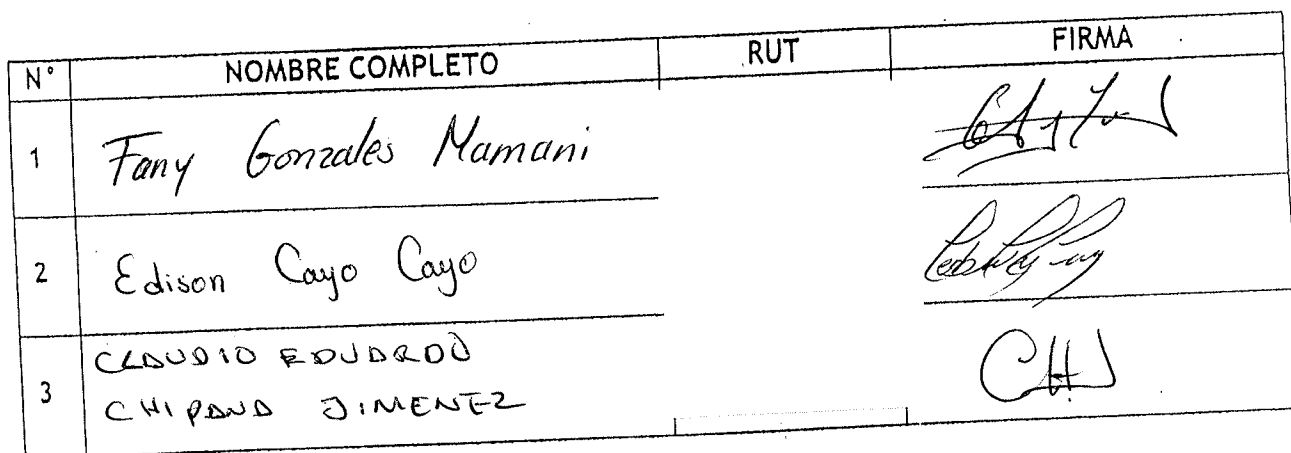 N° NOMBRE COMPLETO RUT FIRMA
1 Fany Gonzales Mamani
2 Edison Cayo Cayo
CLAUDIO EDUARDO
3 CHIPANA JIMENEZ